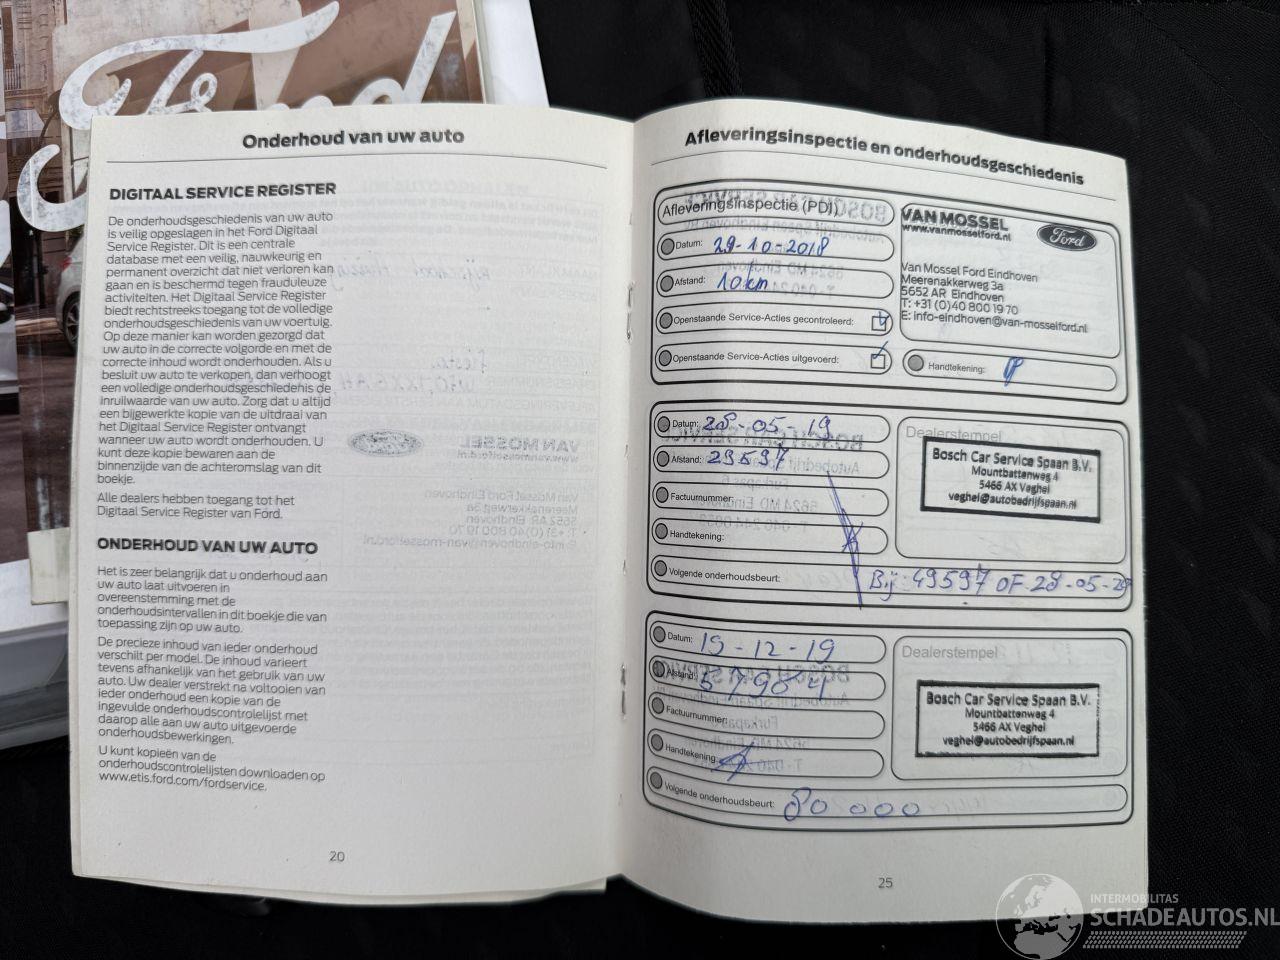 Ford
Onderhoud van uw auto
DIGITAAL SERVICE REGISTER
De onderhoudsgeschiedenis van uw auto
is veilig opgeslagen in het Ford Digitaal
Service Register. Dit is een centrale
database met een veilig, nauwkeurig en
permanent overzicht dat niet verloren kan
gaan en is beschermd tegen frauduleuze
activiteiten. Het Digitaal Service Register
biedt rechtstreeks toegang tot de volledige
onderhoudsgeschiedenis van uw voertuig.
Op deze manier kan worden gezorgd dat
uw auto in de correcte volgorde en met de
correcte inhoud wordt onderhouden. Als u
besluit uw auto te verkopen, dan verhoogt
een volledige onderhoudsgeschiedenis de
inruilwaarde van uw auto. Zorg dat u altijd
een bijgewerkte kopie van de uitdraai van
het Digitaal Service Register ontvangt
wanneer uw auto wordt onderhouden. U
kunt deze kopie bewaren aan de
binnenzijde van de achteromslag van dit
boekje.
Alle dealers hebben toegang tot het
Digitaal Service Register van Ford.
ONDERHOUD VAN UW AUTO
Het is zeer belangrijk dat u onderhoud aan
uw auto laat uitvoeren in
overeenstemming met de
onderhoudsintervallen in dit boekje die van
toepassing zijn op uw auto.
De precieze inhoud van ieder onderhoud
verschilt per model. De inhoud varieert
tevens afhankelijk van het gebruik van uw
auto. Uw dealer verstrekt na voltooien van
ieder onderhoud een kopie van de
ingevulde onderhoudscontrolelijst met
daarop alle aan uw auto uitgevoerde
onderhoudsbewerkingen.
U kunt kopieën van de
onderhoudscontrolelijsten downloaden op
www.etis.ford.com/fordservice.
20
Afleveringsinspectie en onderhoudsgeschiedenis
Afleveringsinspectie (PDI)
Datum: 29-10-2018
Afstand: 10km
Openstaande Service-Acties gecontroleerd:
Openstaande Service-Acties uitgevoerd:
VAN MOSSEL
www.vanmosselford.nl
Ford
Van Mossel Ford Eindhoven
Meerenakkerweg 3a
5652 AR Eindhoven
T: +31 (0)40 800 19 70
E: info-eindhoven@van-mosselford.nl
Handtekening:
Datum: 28-05-19
Afstand: 29597
Factuurnummer:
Handtekening:
Volgende onderhoudsbeurt: Bij: 49597 OF 28-05-20
Dealerstempel
Bosch Car Service Spaan B.V.
Mountbattenweg 4
5466 AX Veghel
veghel@autobedrijfspaan.nl
Datum: 15-12-19
Afstand: 57984
Factuurnummer:
Handtekening:
Volgende onderhoudsbeurt: 80 000
Dealerstempel
Bosch Car Service Spaan B.V.
Mountbattenweg 4
5466 AX Veghel
veghel@autobedrijfspaan.nl
25
INTERMOBILITAS
SCHADEAUTOS.NL